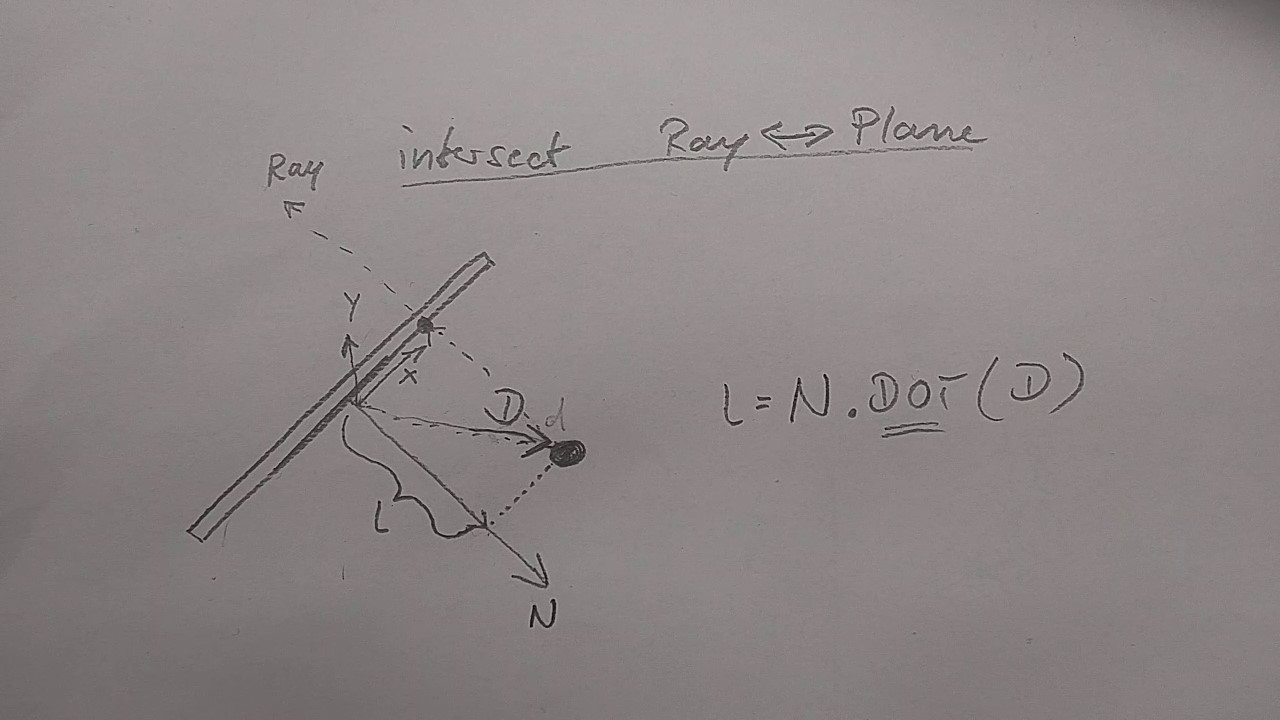 intersect Ray <-> Plane
Ray
Y
X
D d
L = N.DOT(D)
L
N